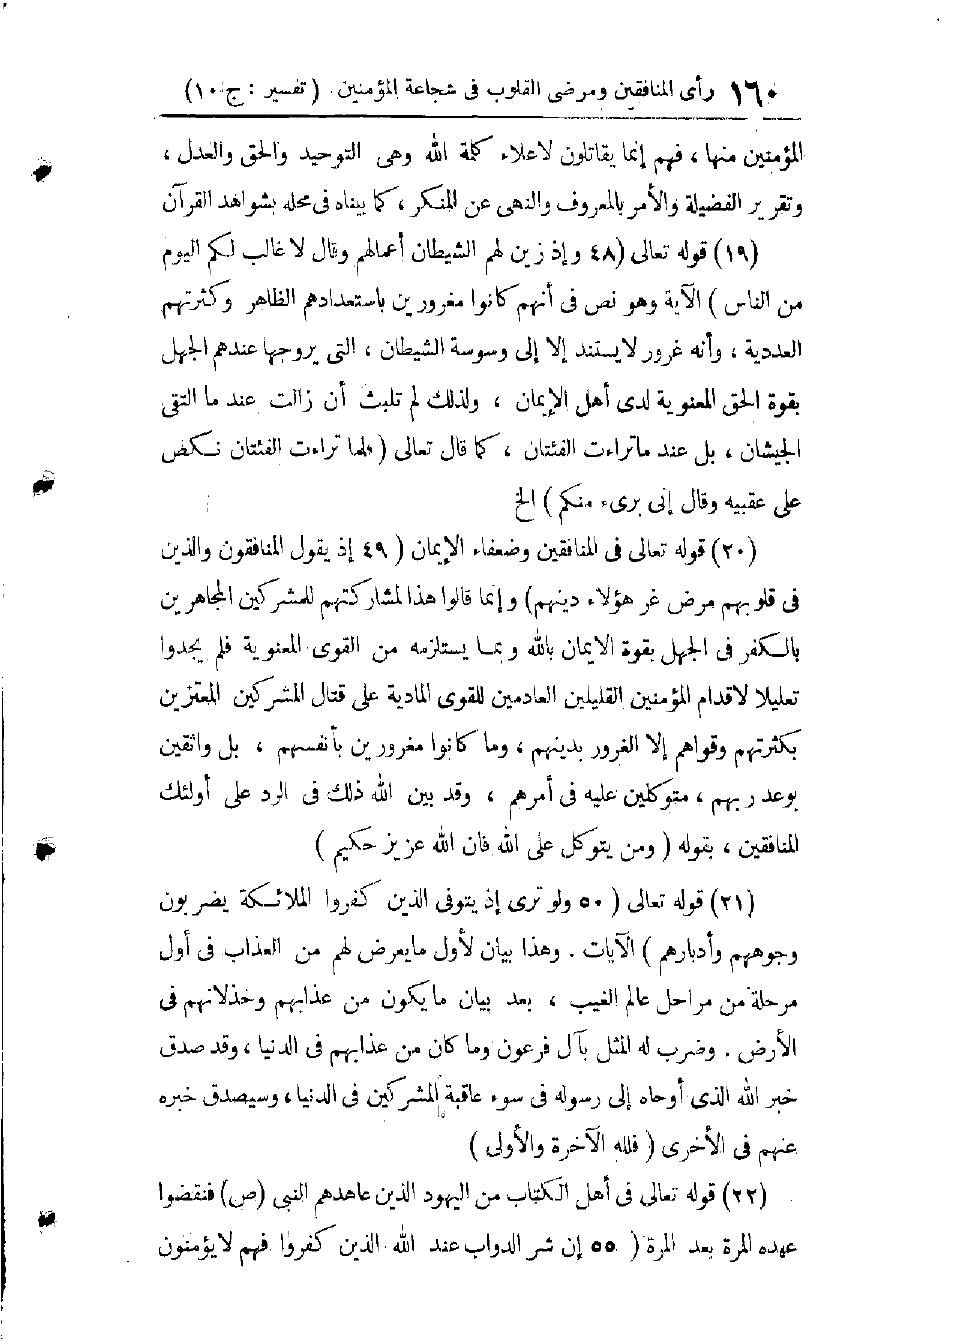 ١٦٠ رأى المنافقين ومرضى القلوب فى شجاعة المؤمنين . ( تفسير : ج ١٠ )
المؤمنين منها ، فهم إنما يقاتلون لاعلاء كلمة الله وهى التوحيد والحق والعدل ،
وتقرير الفضيلة والأمر بالمعروف والنهى عن المنكر ، كما بيناه فى محله بشواهد القرآن
(١٩) قوله تعالى (٤٨ وإذ زين لهم الشيطان أعمالهم وقال لا غالب لكم اليوم
من الناس ) الآية وهو نص فى أنهم كانوا مغرورين باستعدادهم الظاهر وكثرتهم
العددية ، وأنه غرور لايستند إلا إلى وسوسة الشيطان ، التى يروجها عندهم الجهل
بقوة الحق المعنوية لدى أهل الإيمان ، ولذلك لم تلبث أن زالت عند ما التقى
الجيشان ، بل عند ماتراءت الفئتان ، كما قال تعالى ( فلما تراءت الفئتان نكص
على عقبيه وقال إنى برىء منكم ) الخ
(٢٠) قوله تعالى فى المنافقين وضعفاء الإيمان ( ٤٩ إذ يقول المنافقون والذين
فى قلوبهم مرض غر هؤلاء دينهم) وإنما قالوا هذا لمشاركتهم للمشركين المجاهرين
بالكفر فى الجهل بقوة الايمان بالله وبما يستلزمه من القوى المعنوية فلم يجدوا
تعليلا لاقدام المؤمنين القليلين العادمين للقوى المادية على قتال المشركين المعتزين
بكثرتهم وقواهم إلا الغرور بدينهم ، وما كانوا مغرورين بأنفسهم ، بل واثقين
بوعد ربهم ، متوكلين عليه فى أمرهم ، وقد بين الله ذلك فى الرد على أولئك
المنافقين ، بقوله ( ومن يتوكل على الله فان الله عزيز حكيم )
(٢١) قوله تعالى ( ٥٠ ولو ترى إذ يتوفى الذين كفروا الملائكة يضربون
وجوههم وأدبارهم ) الآيات . وهذا بيان لأول مايعرض لهم من العذاب فى أول
مرحلة من مراحل عالم الغيب ، بعد بيان مايكون من عذابهم وخذلانهم فى
الأرض . وضرب له المثل بآل فرعون وما كان من عذابهم فى الدنيا ، وقد صدق
خبر الله الذى أوحاه إلى رسوله فى سوء عاقبة المشركين فى الدنيا ، وسيصدق خبره
عنهم فى الأخرى ( فلله الآخرة والأولى )
(٢٢) قوله تعالى فى أهل الكتاب من اليهود الذين عاهدهم النبى (ص) فنقضوا
عهده المرة بعد المرة ( ٥٥ إن شر الدواب عند الله الذين كفروا فهم لايؤمنون